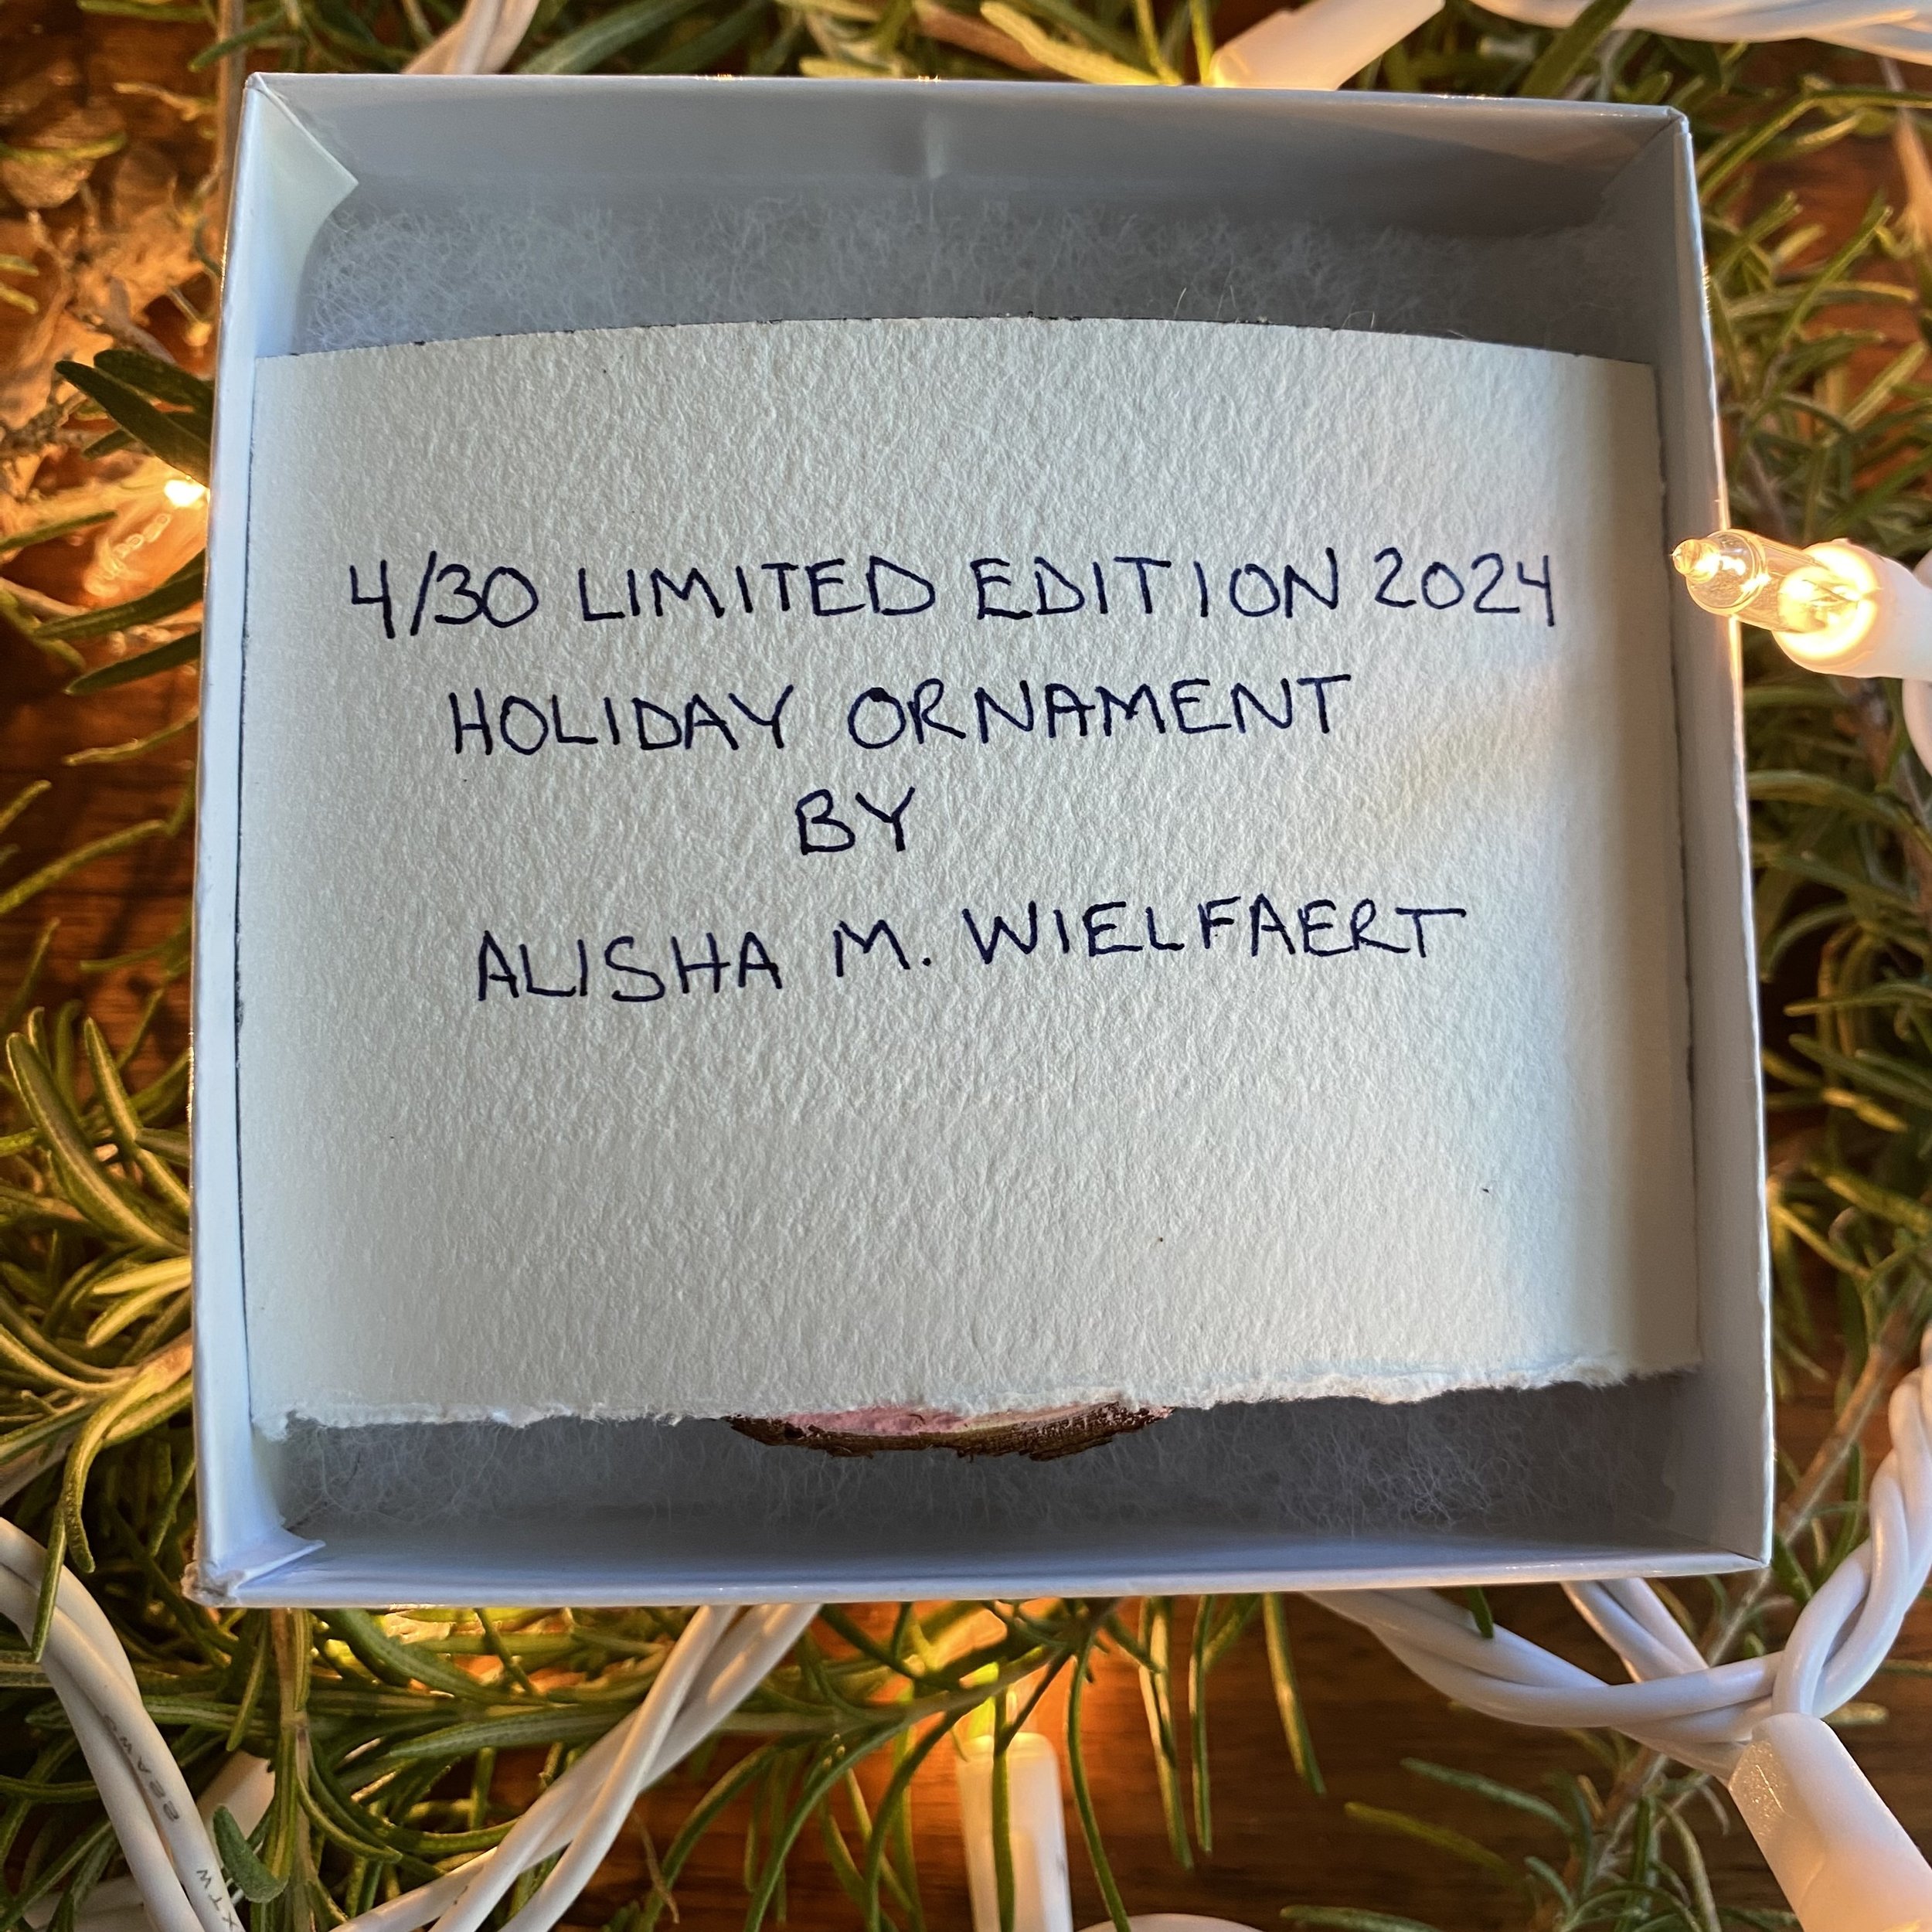 4/30 LIMITED EDITION 2024
HOLIDAY ORNAMENT
BY
ALISHA M. WIELFAERT